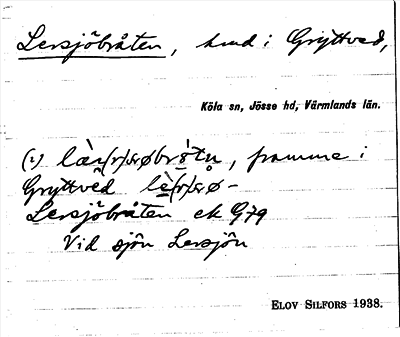 Lersjöbråten, hmd i Gryttved,
Köla sn, Jösse hd, Värmlands län.
(2) framme i
Gryttved
Lersjöbråten ek G79
Vid sjön Lersjön
ELOV SILFORS 1938.